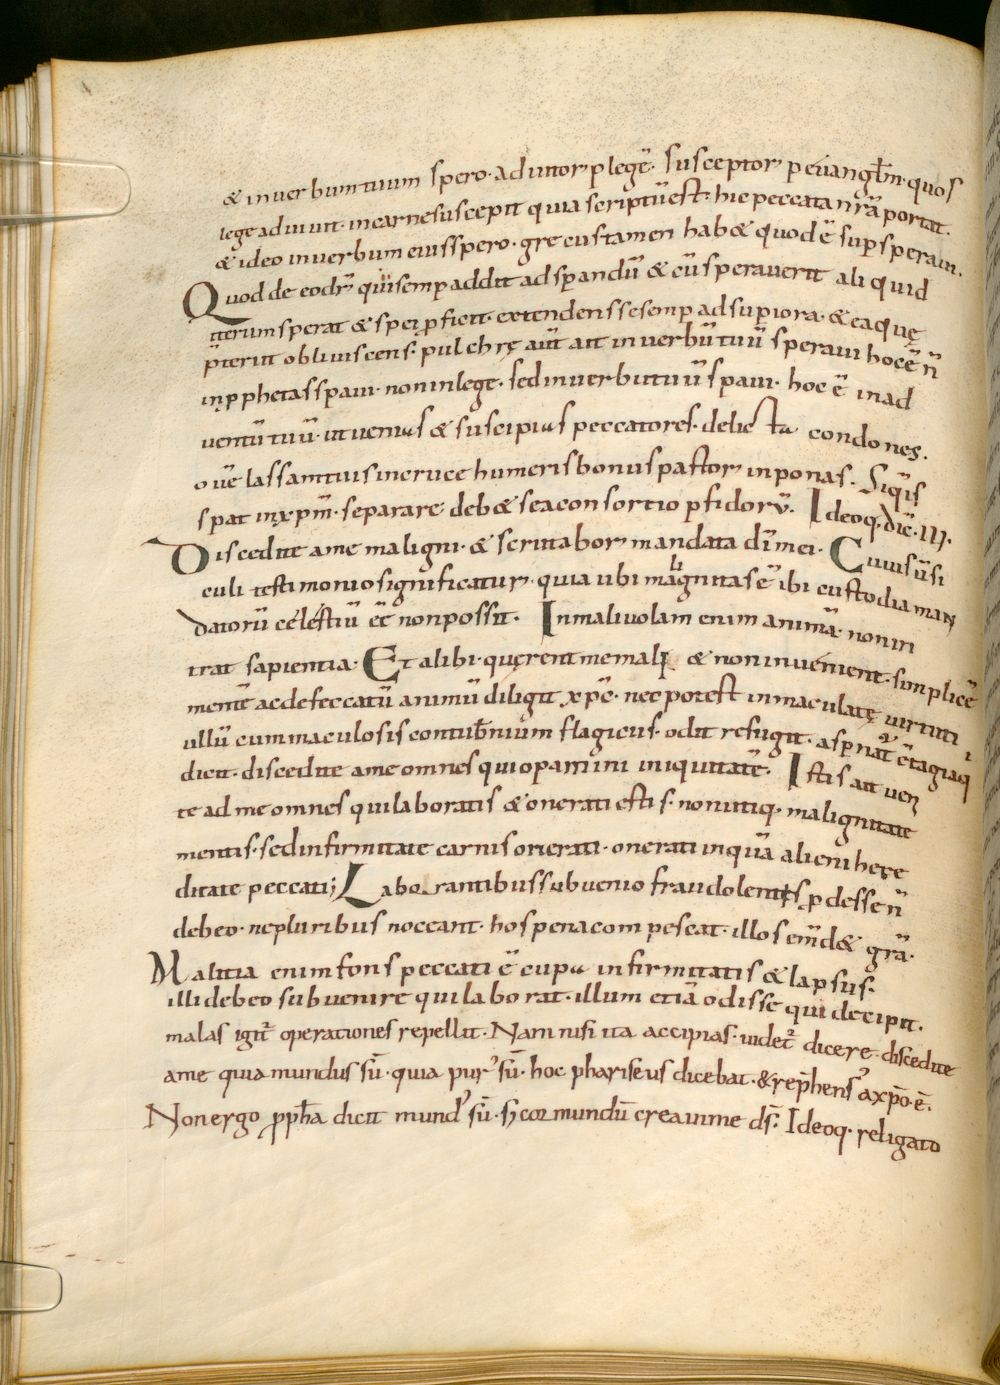 & in verbum tuum spero. adiutor p legẽ. susceptor p euangl̄m. quos
lege adiuuit. in carne suscepit quia scriptũ est. hic peccata nr̃a portat.
& ideo in uerbum eius spero. gre eius tamen hab& quod ẽ sup speraui.
Quod de eodr̃ qui semp addit ad spandũ & cũ sperauerit aliquid
iterum sperat & spei pficit. extendens se semp ad supiora. & ea quę
p̄terit obliuiscens. pulchrę aũt ait in uerbũ tuũ speraui hoc ẽ ñ
in pphetas spaui. non in lege. sed in uerbũ tuũ spaui. hoc ẽ in ad
uentũ tuũ. ut venias & suscipias peccatores. delicta condones.
ouẽ lassam tuis in cruce humeris bonus pastor inponas. Siq̃s
spat in xp̄m. separare deb& se a consortio pfidorũ. Ideoq. dic̃. III.
Discedite a me maligni. & scrutabor mandata dĩ mei. Cuius ũsi
culi testimonio significatur. quia ubi malignitas ẽ ibi custodia man
datorũ celestiũ eẽ non possit. In maliuolam enim animã. non in
trat sapientia. Et alibi. quęrent me mali & non inuenient. simplicẽ
mentẽ ac defeccatũ animũ diligit xp̄c. nec potest inmaculatę uirtuti
ullũ cum maculosis contubñium flagiciis. odit refugit. aspnat̃
dicit. discedite a me omnes qui opamini iniquitatẽ. Istis ait uen
te ad me omnes qui laboratis & onerati estis. non utiq. malignitate
mentis. sed infirmitate carnis onerati. onerati inquã alieni herę
ditate peccati; Laborantibus subuenio fraudolentis pdesse ñ
debeo. ne pluribus noceant. hos pena compescat. illos em̃d& grã.
Malitia enim fons peccati ẽ culpa infirmitatis & lapsus.
illi debeo subuenire qui laborat. illum etiã odisse qui decipit.
malas igit̃ operationes repellit. Nam nisi ita accipias. uidet̃ dicere. discedite
a me quia mundus sũ. quia pur' sũ. hoc phariseus dicebat. & rephens' a xp̄o. ẽ.
Non ergo ppha dicit mund' sũ. s; cor mundũ crea in me dṡ. Ideoq. religato